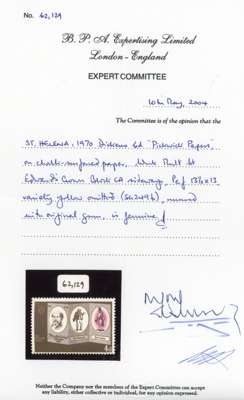 No. 62,129
B. P. A. Expertising Limited
London - England
EXPERT COMMITTEE
10th May, 2004
The Committee is of the opinion that the
ST. HELENA, 1970 Dickens 4d "Pickwick Papers"
on chalk-surfaced paper, Wmk Mult St
Edward's Crown Block CA sideways, Perf 13½x13
variety yellow omitted (SG249b), unused
with original gum, is genuine
62,129
Neither the Company nor the members of the Expert Committee can accept
any liability, either collective or individual, for any opinion expressed.